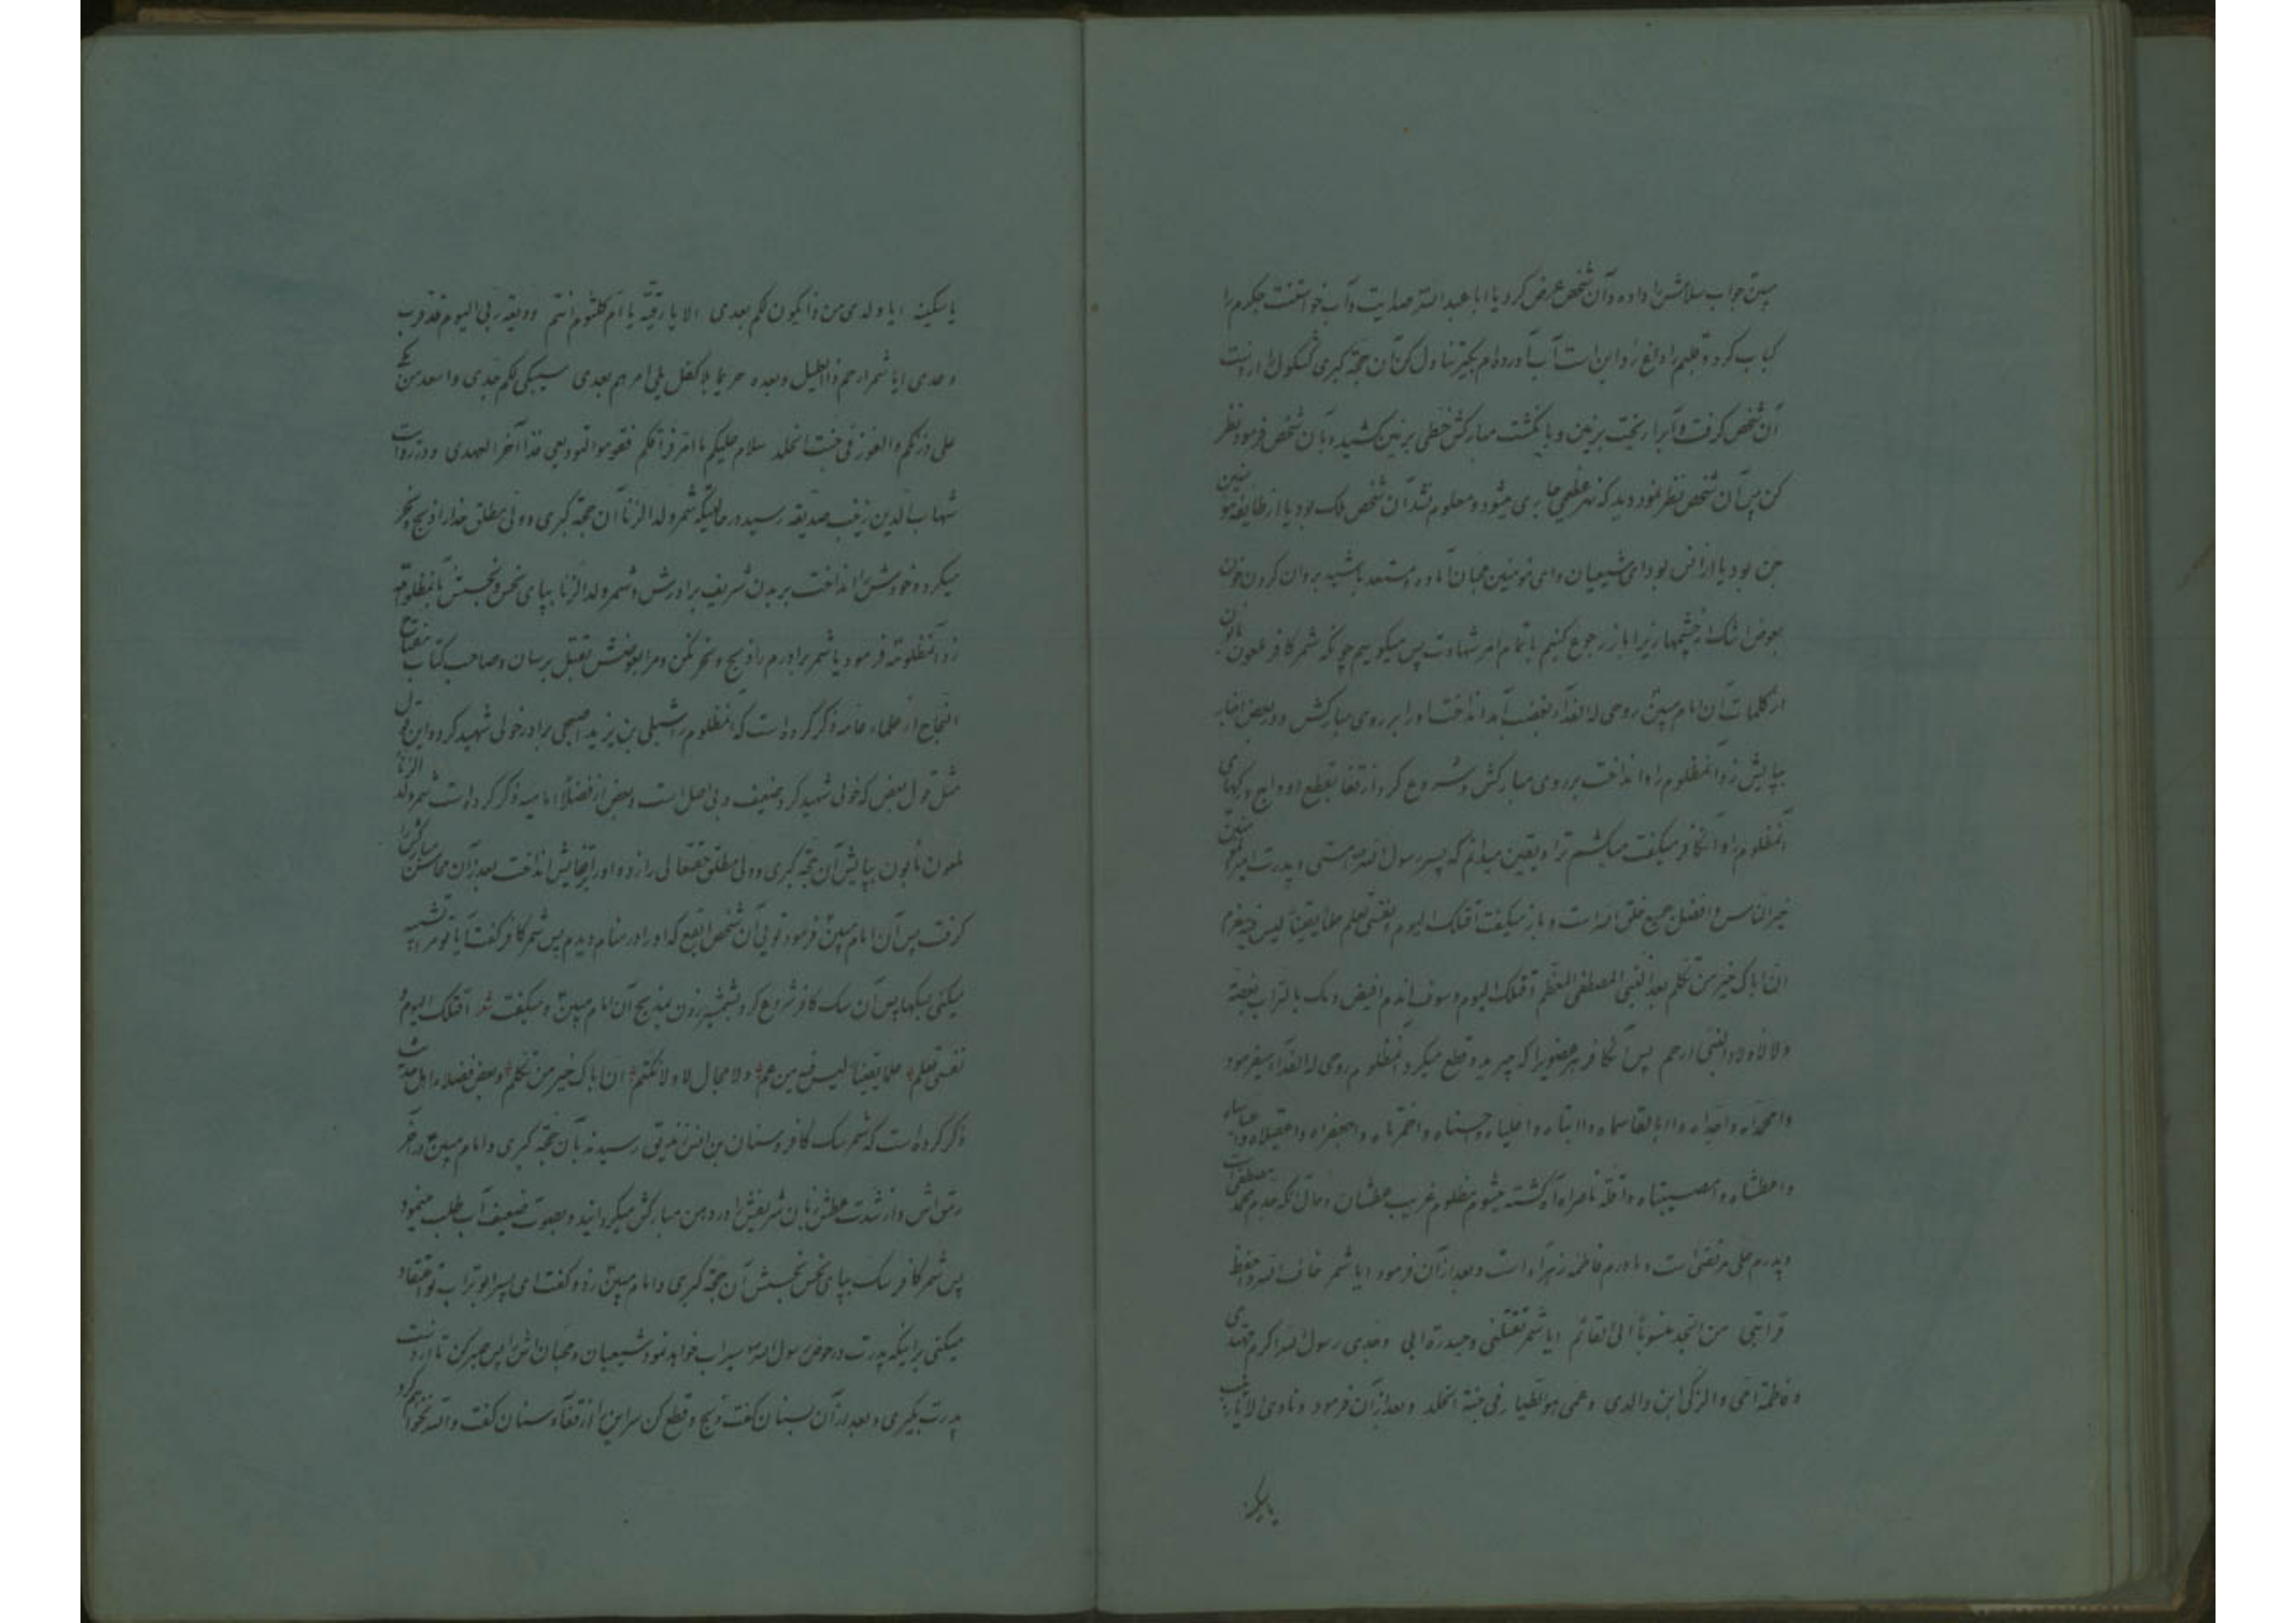 مبین جواب سلامش را داده و آن شخص عرض کرد یا ابا عبد الله صدایت و آب خواستنت جکرم را
کباب کرد و قلبم را داغ زد این است آب آورده‌ام بگیر تناول کن آن حجة کبری کشکول را از دست
آن شخص گرفت و آبرا ریخت بزمین و با انگشت مبارکش خطی بزمین کشید و بآن شخص فرمود نظر
کن پس آن شخص نظر نمود دید که نهر عظیمی جاری میشود و معلوم نشد آن شخص ملک بود یا از طایفه مؤمنین
جن بود یا از انس بود ای شیعیان و ای مؤمنین محبان آماده و مستعد باشید بروان کردن خون
بعوض اشک از چشمها زیرا باز رجوع کنیم باتمام امر شهادت پس میگوییم چونکه شمر کافر ملعون مأبون
از کلمات آن امام مبین روحی له الفدآء بغضب آمد انداخت او را بر روی مبارکش و در بعض اخبار
بپایش زد آنمظلوم را و انداخت بر روی مبارکش و شروع کرد از قفا بقطع اوداج و رگهای
آنمظلوم را و آنکافر میگفت میکشم ترا و یقین میدانم که پسر رسول الله هستی و پدرت امیر المؤمنین
خیر الناس و افضل جمیع خلق الله است و باز میگفت اقتلک الیوم و نفسی تعلم علما یقینا لیس فیه مزعم
ان اباک خیر من تکلم بعد النبی المصطفی المعظم اقتلک الیوم و سوف اندم
ولا لاولاد النبی ارحم پس آنکافر هر عضویرا که میبرید و قطع میکرد آنمظلوم روحی له الفدآء میفرمود
وا محمداه وا جداه وا ابا القاسماه وا ابتاه وا علیاه وا حسناه وا حمزتاه وا جعفراه وا عقیلاه وا عباساه
وا عطشاه وا مصیبتاه وا قلة ناصراه آه کشته میشوم مظلوم غریب عطشان و حال آنکه جدم محمد مصطفی است
و پدرم علی مرتضی است و مادرم فاطمه زهراء است و بعد از آن فرمود ایا شمر خاف الله و احفظ
قرابتی من الجد منسوبا الی القائم ایا شمر تقتلنی و حیدرة ابی و جدی رسول الله اکرم مهتدی
و فاطمة امی و الزکی ابن والدی و عمی هو الطیار فی جنة الخلد و بعد از آن فرمود و نادی الا یا زینب
یا سکینه
یا سکینه ایا ولدی من ذا یکون لکم بعدی الا یا رقیة یا ام کلثوم انتم ودیعة ربی الیوم قد قرب
وعدی ایا شمر ارحم ذا العلیل و بعده حریما بلا کفل یلی امرهم بعدی سیبکی لکم جدی و اسعد من بکی
علی رزئکم و الفوز فی جنت الخلد سلام علیکم ما امر فراقکم فقوموا لتودیعی فذا آخر العهدی و در روایت
شهاب الدین زینب صدیقه رسید در حالتیکه شمر ولد الزنا آن حجة کبری و ولی مطلق خدا را ذبح و نحر
میکرد و خودش را انداخت بر بدن شریف برادرش و شمر ولد الزنا بپای نحس نجسش بآنمظلومه
زد آنمظلومه فرمود یا شمر برادرم را ذبح و نحر نکن و مرا بعوضش بقتل برسان و صاحب کتاب مفتاح
النجاح از علماء عامه ذکر کرده است که آنمظلوم را شبلی بن یزید اصبحی برادر خولی شهید کرد و این قول
مثل قول بعض که خولی شهید کرد ضعیف و بی اصل است و بعض از فضلاء امامیه ذکر کرده است شمر ولد الزنا
ملعون مأبون بپایش آن حجة کبری و ولی مطلق حقتعالی را زده و او را بقفایش انداخت بعد از آن محاسن مبارکش را
گرفت پس آن امام مبین فرمود توئی آن شخص ابقع که او را در منام دیدم پس شمر کافر گفت آیا تو مرا تشبیه
میکنی بسگها پس آن سگ کافر شروع کرد بشمشیر زدن بمذبح آن امام مبین و میگفت شعر اقتلک الیوم و
نفسی تعلم علما یقینا لیس فیه من عم ولا مجال لا ولا تکتم ان اباک خیر من تکلم و بعض فضلاء اهل حدیث
ذکر کرده است که شمر سگ کافر و سنان بن انس رسیدند بآن حجة کبری و امام مبین در آخر
رمق اش و از شدت عطش زبان شریفش را در دهن مبارکش میگردانید و بصوت ضعیف آب طلب مینمود
پس شمر کافر سگ بپای نحس نجسش آن حجة کبری و امام مبین زد و گفت ای پسر ابو تراب تو اعتقاد
میکنی بر اینکه پدرت در حوض رسول الله سیراب خواهد نمود شیعیان و محبان اش را پس صبر کن تا از دست
پدرت بگیری و بعد از آن بسنان گفت ذبح و قطع کن سر این را از قفا و سنان گفت والله نخواهم کرد